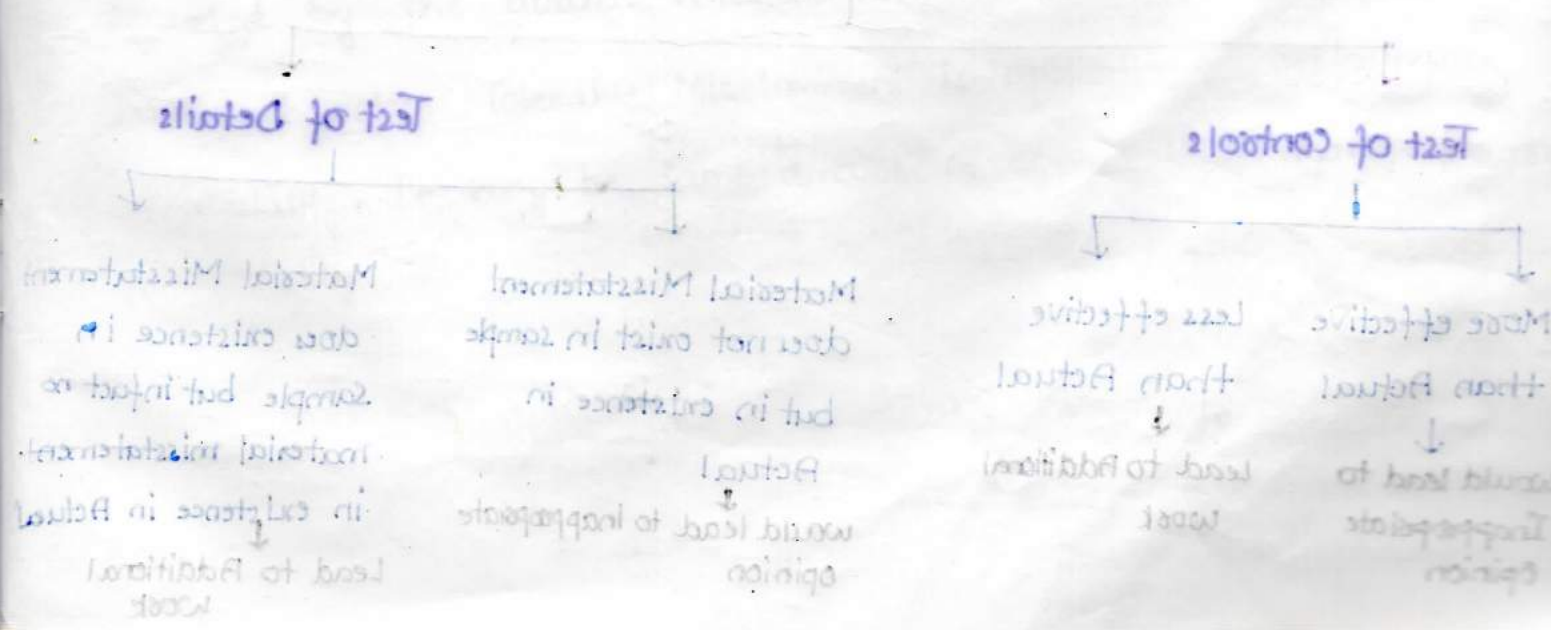 Test of Controls
More effective
than Actual
would lead to
Inappropriate
opinion
Less effective
than Actual
Lead to Additional
Work
Test of Details
Material Misstatement
does not exist in sample
but in existence in
Actual
would lead to Inappropriate
opinion
Material Misstatement
does existence in
Sample but infact no
material misstatement
in existence in Actual
Lead to Additional
Work